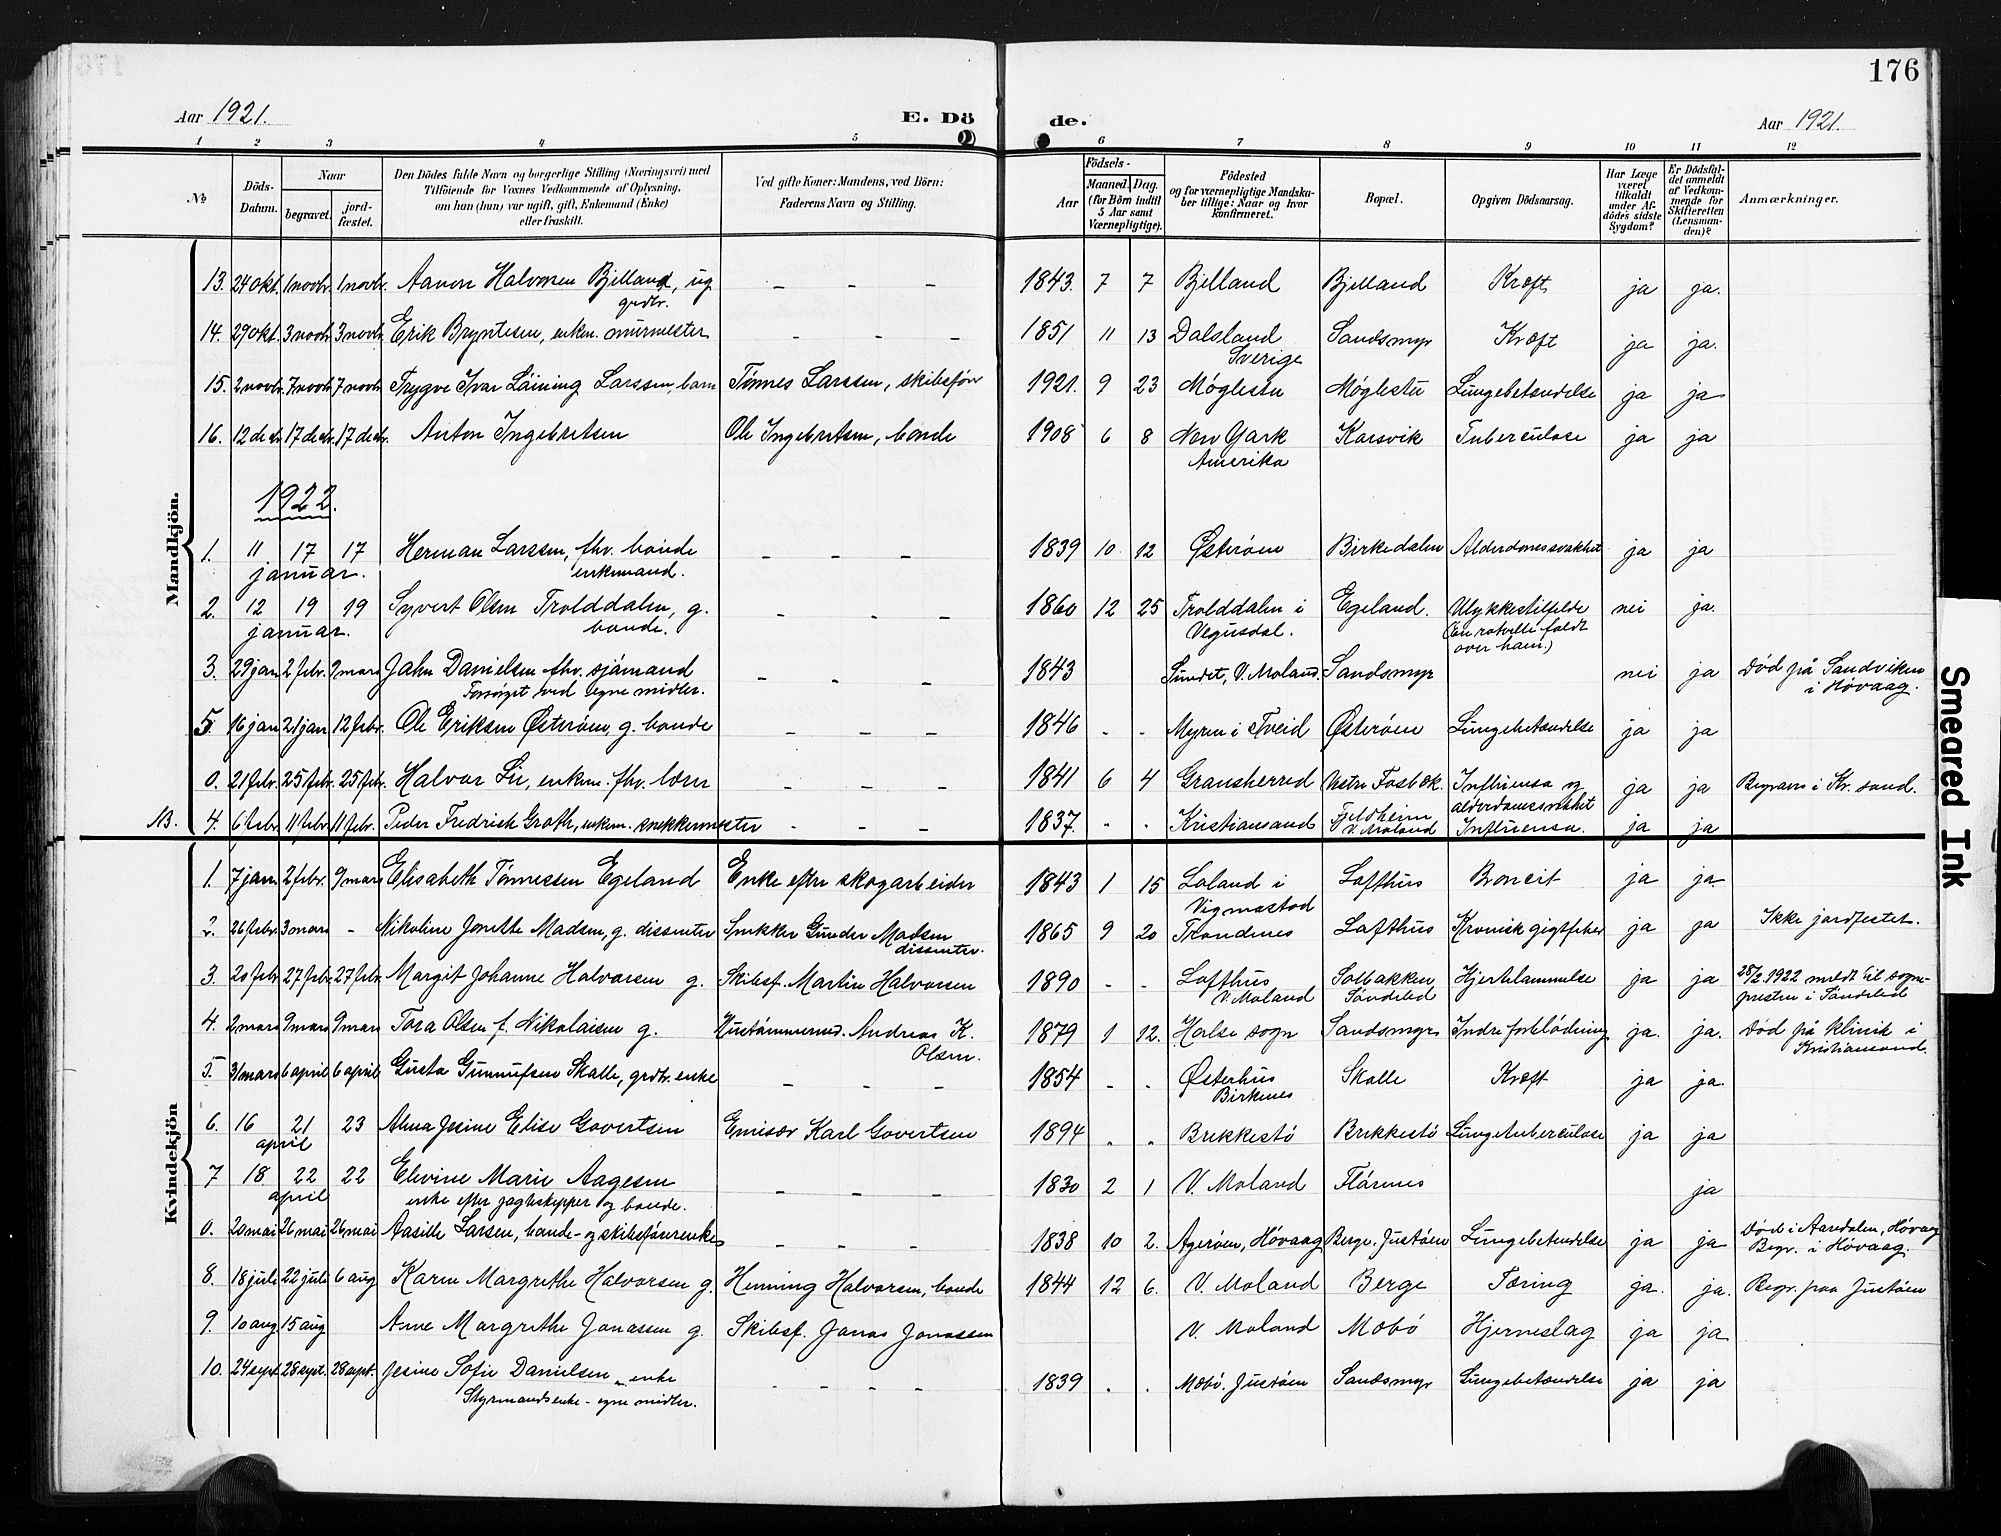 176
Aar 1921.
E. Dö
de.
Aar 1921.
1 2 3 4 5 6 7 8 9 10 11 12
No
Döds-
Datum.
Naar
begravet.
jord-
fæstet.
Den Dödes fulde Navn og borgerlige Stilling (Næringsvei) med
Tilföiende for Voxnes Vedkommende af Oplysning,
om han (hun) var ugift, gift, Enkemand (Enke)
eller fraskilt.
Ved gifte Koner: Mandens, ved Börn:
Faderens Navn og Stilling.
Födsels-
Aar
Maaned. Dag.
(for Börn indtil
5 Aar samt
Værnepligtige).
Födested
og for værnepligtige Mandska-
ber tillige: Naar og hvor
konfirmeret.
Bopæl.
Opgiven Dödsaarsag.
Har Læge
været
tilkaldt
under Af-
dödes sidste
Sygdom?
Er Dödsfal-
det anmeldt
af Vedkom-
mende for
Skifteretten
(Lensman-
den)?
Anmærkninger.
Mandkjön.
13. 24 okt. 1 novbr. 1 novbr. Aanon Halvorsen Bjelland, ug - - - 1843. 7 7 Bjelland Bjelland Kræft ja ja.
grdbr.
14. 29 okt. 3 novbr 3 novbr. Erik Bryntesen, enkem. murmester - - - 1851 11 13 Dalsland Sandsmyr Kræft ja ja.
Sverige
15. 2 novbr. 7 novbr. 7 novbr. Trygve Ivar Läining Larssen, barn Tönnes Larssen, skibsför 1921. 9 23 Møglestu Møglestu Lungebetændelse ja ja
16. 12 decbr. 17 decbr. 17 decbr. Anton Ingebretsen Ole Ingebretsen, bonde 1908 6 8 New York Korsvik Tuberculose ja ja
Amerika
1922.
1. 11 17 17 Herman Larssen, fhv. bonde - - - 1839 10. 12 Østerøen Birkedalen Alderdomssvakhet ja ja
januar. enkemand.
2. 12 19 19 Syvert Olsen Trolddalen, g. - - - 1860 12 25 Trolddalen i Egeland. Ulykkestilfelde nei ja.
januar. bonde. Vegusdal. (En rotvelte faldt
over ham.)
3. 29 jan. 2 febr. 9 mars Jahn Danielsen fhv. sjömand - - - 1843 Sundet, V. Moland. Sandsmyr nei ja Död på Sandviken
Forsörget ved egne midler. i Høvaag.
5. 16 jan 21 jan 12 febr. Ole Eriksen Østerøen, g. bonde - - - 1846 - - Myren i Tveid Østerøen Lungebetændelse ja ja
0. 21 febr. 25 febr. 25 febr. Halvor Lie, enkem. fhv. lærer - - - 1841 6 4 Gransherred Vestre Fosbæk. Influensa og ja ja Begraves i Kr. sand.
alderdomssvakhet
NB. 4. 6 febr. 11 febr. 11 febr. Peder Fredrich Groth, enkem. snekkermester - - - 1837. - - Kristiansand Fjeldheim Influensa. ja ja
V. Moland
Kvindekjön
1. 7 jan. 2 febr. 9 mars Elisabeth Tönnessen Egeland Enke efter skogarbeider 1843 1 15 Loland i Lofthus Broncit ja ja.
Vigmostad
2. 26 febr. 3 mars - Nikoline Jonette Madsen, g. dissenter Snekker Gunder Madsen 1865 9 20 Trondenes Lofthus Kronisk gigtfeber ja ja Ikke jordfestet.
dissenter.
3. 20 febr 27 febr. 27 febr. Margit Johanne Halvorsen g. Skibsf. Martin Halvorsen 1890 - - Lofthus Solbakken Hjertelammelse ja ja 28/2 1922 meldt til sogne-
V. Moland Söndeled presten i Söndeled
4. 2 mars 9 mars 9 mars Tora Olsen f. Nikolaisen g. Hustömmermd. Andreas K. 1879 1 12. Halse sogn Sandsmyr Indre forblödning ja. ja. Död på klinik i
Olsen. Kristiansand.
5. 31 mars 6 april 6 april Gusta Gunnufsen Skalle, grdbr. enke - - - 1854 - - Østerhus Skalle Kræft ja ja.
Birkenes
6. 16 21 23 Alma Jesine Elise Govertsen Emisær Karl Govertsen 1894 - - Brekkestö Brekkestö Lungetuberculose ja ja
april
7 18 22 22 Elevine Marie Aagesen - - - 1830 2 1 V. Moland Flörenes ja
april enke efter jagtskipper og bonde.
0. 20 mai 26 mai 26 mai Aasille Larsen, bonde- og skibsförerenke - - - 1838 10 2. Agerøen, Høvaag Berge. Justøen Lungebetændelse ja ja Död i Aardalen, Høvaag
Begr. i Høvaag.
8. 18 juli 22 juli 6 aug Karen Margrethe Halvorsen g. Henning Halvorsen, bonde 1844 12 6. V. Moland Berge Tæring ja. ja. Begr. paa Justøen
9. 10 aug. 15 aug Anne Margrethe Jonassen g. Skibsf. Jonas Jonassen V. Moland Mæbö Hjerneslag ja ja
10. 24 sept. 28 sept. 28 sept. Jesine Sofie Danielsen enke - - - - 1839 - - Mæbö. Justøen Sandsmyr Lungebetændelse ja ja
Styrmandsenke - egne midler.
Smeared Ink